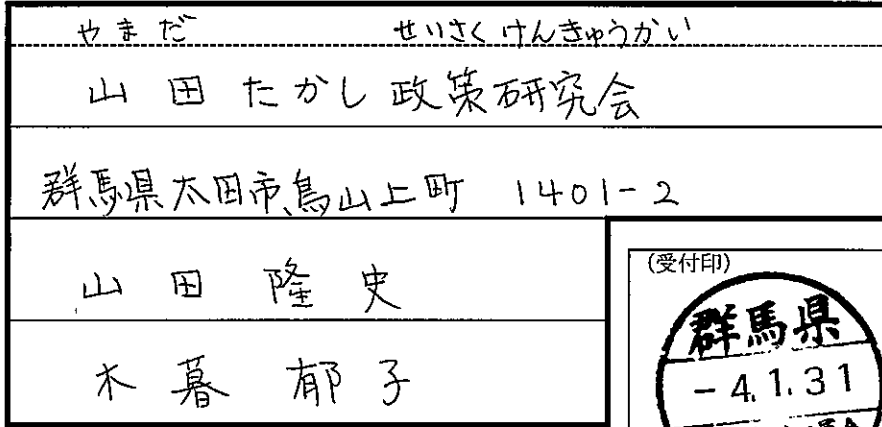 やまだ せいさくけんきゅうかい
山田たかし政策研究会
群馬県太田市鳥山上町 1401-2
山田 隆史
木暮 郁子
(受付印)
群馬県
-4.1.31